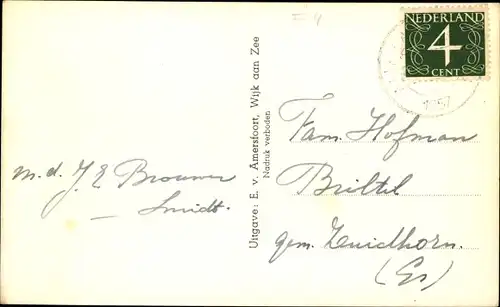 I 4
NEDERLAND
4
CENT
1957
Uitgave: E. v. Amersfoort, Wijk aan Zee
Nadruk verboden
m.d. J. E Brouwer
– Smidt.
Fam. Hofman
Briltil
gem. Zuidhorn.
(Gr)